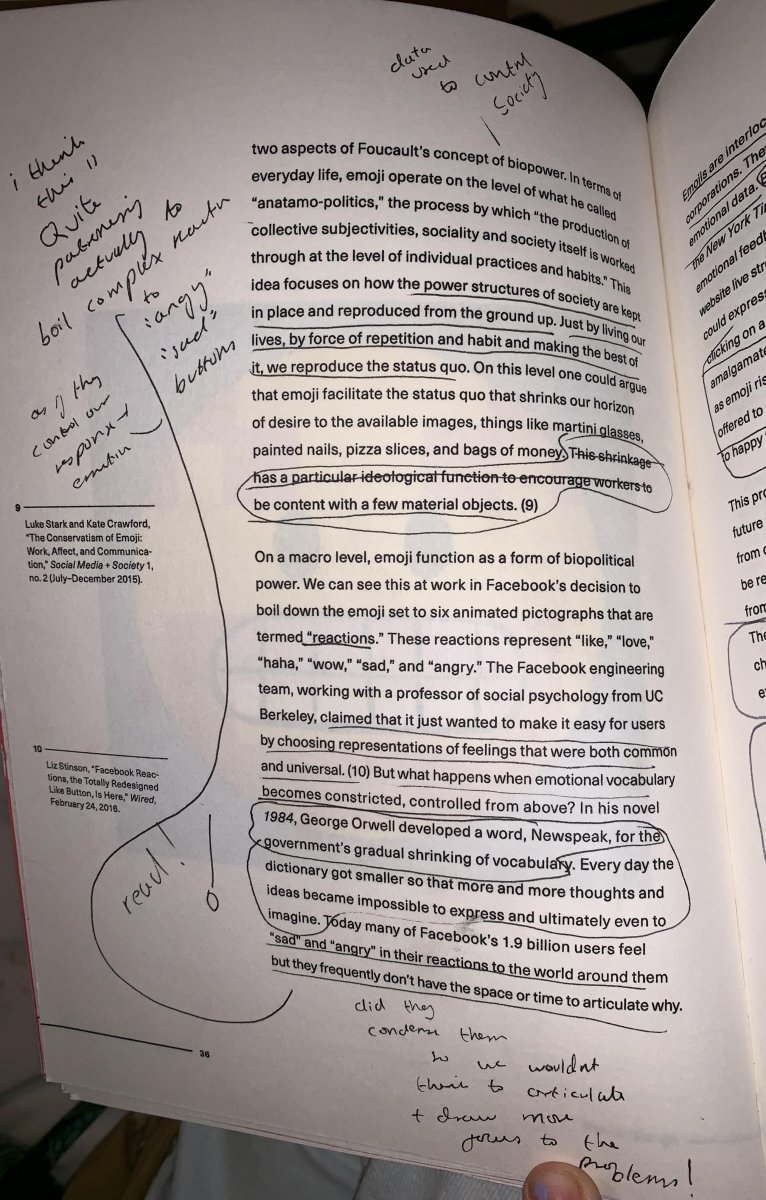 data
used
to control
society
i think
this is
Quite
patronising
actually to
boil complex reactn
to
"angy"
"sad"
buttons
as if they
control our
response +
emotion
two aspects of Foucault's concept of biopower. In terms of
everyday life, emoji operate on the level of what he called
"anatamo-politics," the process by which "the production of
collective subjectivities, sociality and society itself is worked
through at the level of individual practices and habits." This
idea focuses on how the power structures of society are kept
in place and reproduced from the ground up. Just by living our
lives, by force of repetition and habit and making the best of
it, we reproduce the status quo. On this level one could argue
that emoji facilitate the status quo that shrinks our horizon
of desire to the available images, things like martini glasses,
painted nails, pizza slices, and bags of money. This shrinkage
has a particular ideological function to encourage workers to
be content with a few material objects. (9)
9
Luke Stark and Kate Crawford,
"The Conservatism of Emoji:
Work, Affect, and Communica-
tion," Social Media + Society 1,
no. 2 (July–December 2015).
On a macro level, emoji function as a form of biopolitical
power. We can see this at work in Facebook's decision to
boil down the emoji set to six animated pictographs that are
termed "reactions." These reactions represent "like," "love,"
"haha," "wow," "sad," and "angry." The Facebook engineering
team, working with a professor of social psychology from UC
Berkeley, claimed that it just wanted to make it easy for users
by choosing representations of feelings that were both common
and universal. (10) But what happens when emotional vocabulary
becomes constricted, controlled from above? In his novel
1984, George Orwell developed a word, Newspeak, for the
government's gradual shrinking of vocabulary. Every day the
dictionary got smaller so that more and more thoughts and
ideas became impossible to express and ultimately even to
imagine. Today many of Facebook's 1.9 billion users feel
"sad" and "angry" in their reactions to the world around them
but they frequently don't have the space or time to articulate why.
10
Liz Stinson, "Facebook Reac-
tions, the Totally Redesigned
Like Button, Is Here," Wired,
February 24, 2016.
read!
did they
condense them
so we wouldnt
think to articulate
+ draw more
focus to the
problems!
36
Emojis are interloc
corporations. The
emotional data.
the New York Ti
emotional feedb
website live str
could express
clicking on a
amalgamate
as emoji ris
offered to
to happy
This pro
future
from
be re
from
The
ch
e